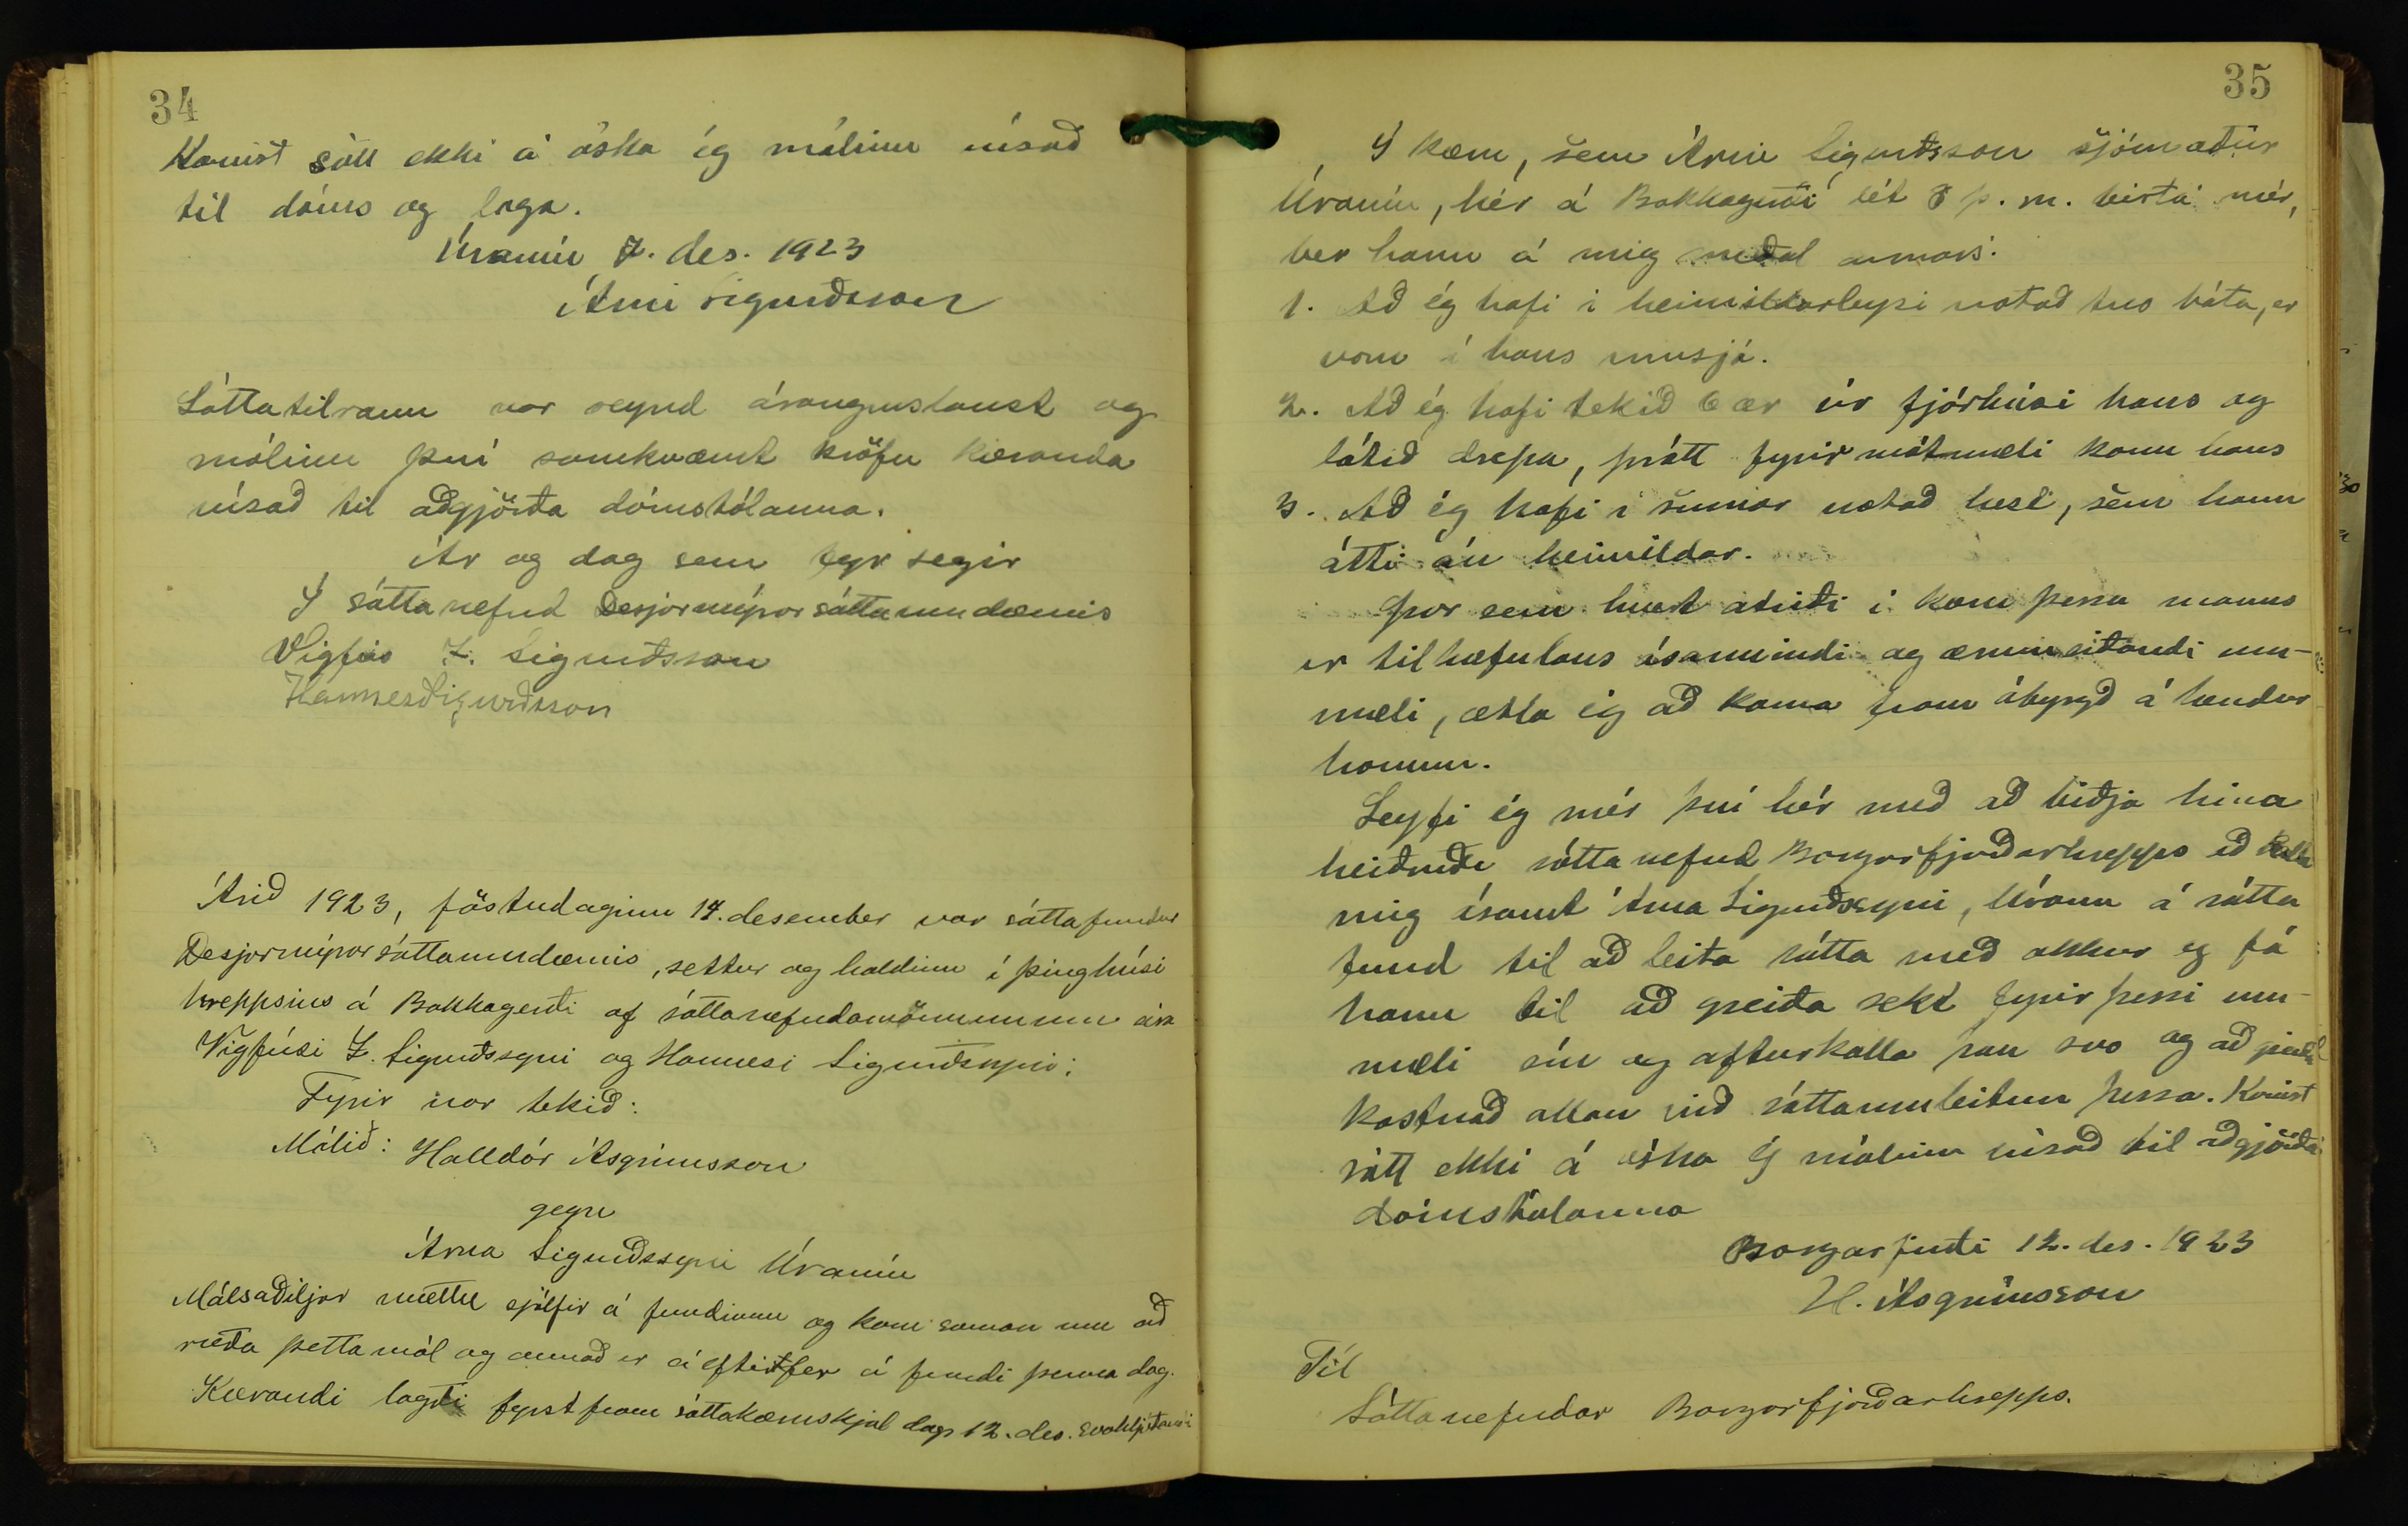 34
Komist sátt ekki á óska ég málinu vísað
til dóms og laga.
Úranín 7. des. 1923
Árni Sigurðsson
Sáttatilraun var reynd árangurslaust og
málinu því samkvæmt kröfu kæranda
vísað til aðgjörða dómstólanna.
Ár og dag sem fyr segir
Í sáttanefnd Desjarmýrarsáttaumdæmis
Vigfús I. Sigurðsson
Hannes Sigurðsson
Árið 1923, föstudaginn 14. desember var sáttafundur
Desjarmýrarsáttaumdæmis, settur og haldinn í þinghúsi
hreppsins á Bakkagerði af sáttanefndamönnunum
Vigfúsi I. Sigurðssyni og Hannesi Sigurðssyni;
Fyrir var tekið:
Málið: Halldór Ásgrímsson
gegn
Árna Sigurðssyni Úranín
Málsaðiljar mættu sjálfir á fundinum og kom saman um að
ræða þetta mál og annað er á eftir fer á fundi þenna dag.
Kærandi lagði fyrst fram sáttakæruskjal dags 12. des. svohljóðandi
35
Í kæru, sem Árni Sigurðsson sjómaður
Úranín, hér á Bakkagerði lét 8 þ. m. birta mér,
ber hann á mig meðal annars:
1. Að ég hafi í heimildarleysi notað tvo báta, er
voru í hans umsjá.
2. Að ég hafi tekið 6 ær úr fjárhúsi hans og
látið drepa, þrátt fyrir mótmæli konu hans
3. Að ég hafi í sumar notað hest, sem hann
átti án heimildar.
Þar sem hvert atriði í kæru þessa manns
er tilhæfulaus ósannindi og ærumeiðandi um-
mæli, ætla ég að koma fram ábyrgð á hendur
honum.
Leyfi ég mér því hér með að biðja hina
heiðruðu sáttanefnd Borgarfjarðarhrepps að kalla
mig ásamt Árna Sigurðssyni, Úranín á sátta
fund til að leita sátta með okkur og fá
hann til að greiða sekt fyrir þessi um-
mæli sín og afturkalla þau svo og að greiða
kostnað allan við sáttaumleitun þessa. Komist
sátt ekki á óska ég málinu vísað til aðgjörða
dómstólanna
Borgarfirði 12. des. 1923
H. Ásgrímsson
Til
Sáttanefndar Borgarfjarðarhrepps.